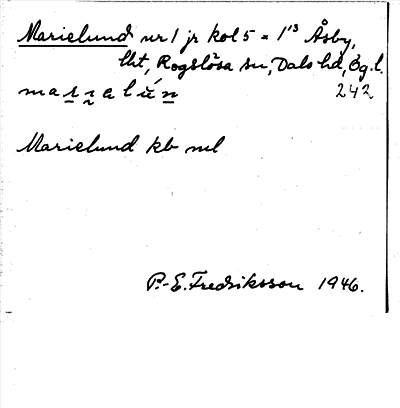 Marielund nr 1 jr kol 5 = 1¹³ Åsby,
lht, Rogslösa sn, Dals hd, Ög. l.
marialún 242
Marielund kb ml
P.-E. Fredriksson 1946.